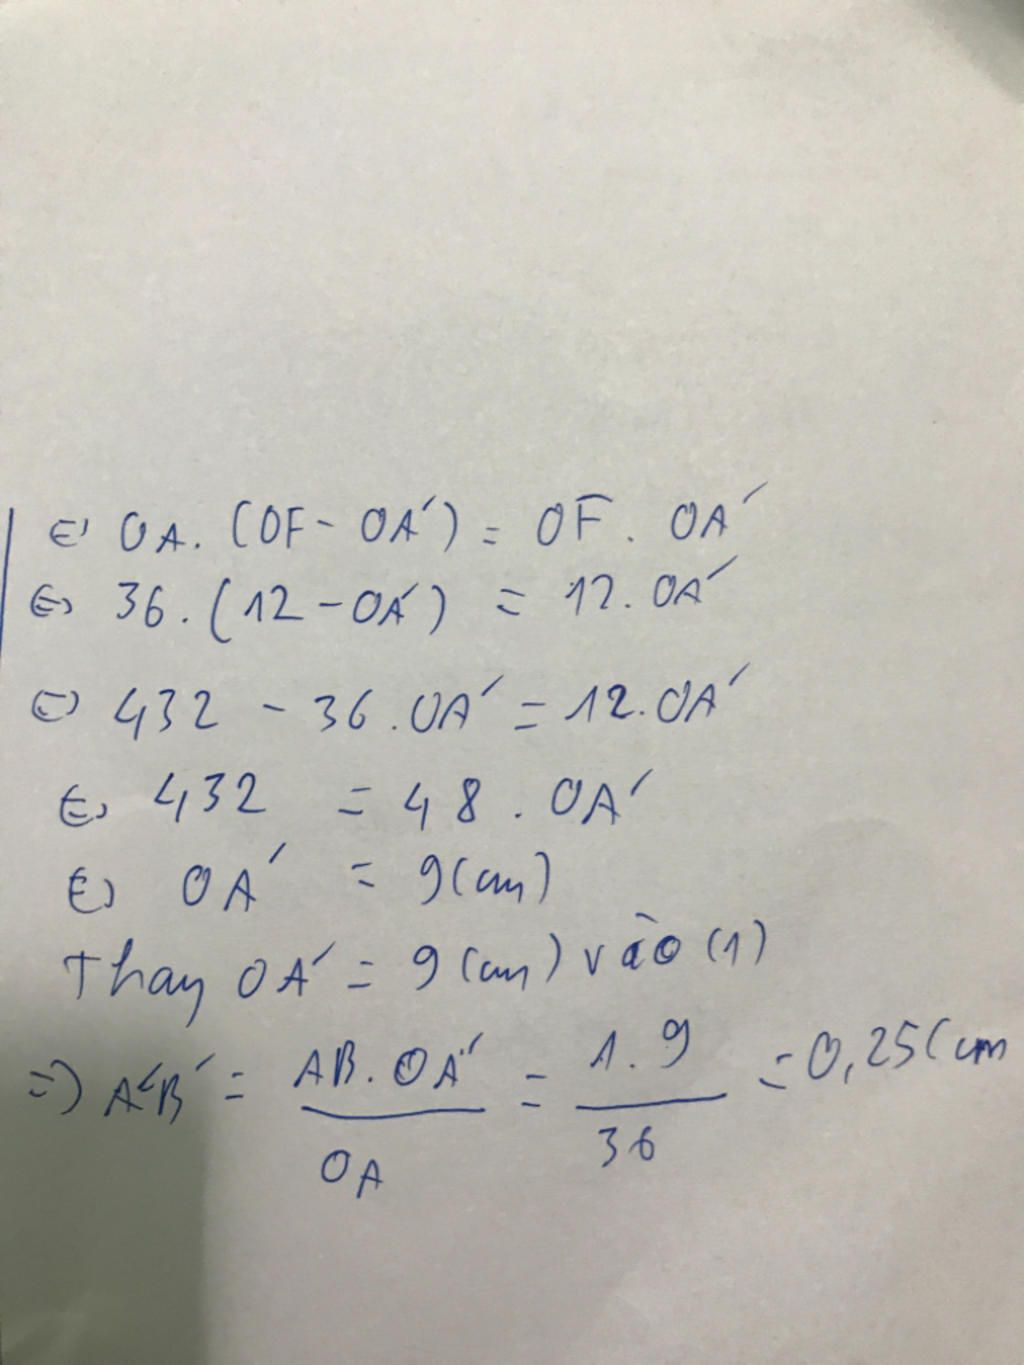 ⇔ OA. (OF - OA') = OF . OA'
⇔ 36. (12 - OA') = 12. OA'
⇔ 432 - 36. OA' = 12. OA'
⇔ 432 = 48 . OA'
⇔ OA' = 9 (cm)
Thay OA' = 9 (cm) vào (1)
=> A'B' = AB. OA' / OA = 1. 9 / 36 = 0,25 (cm